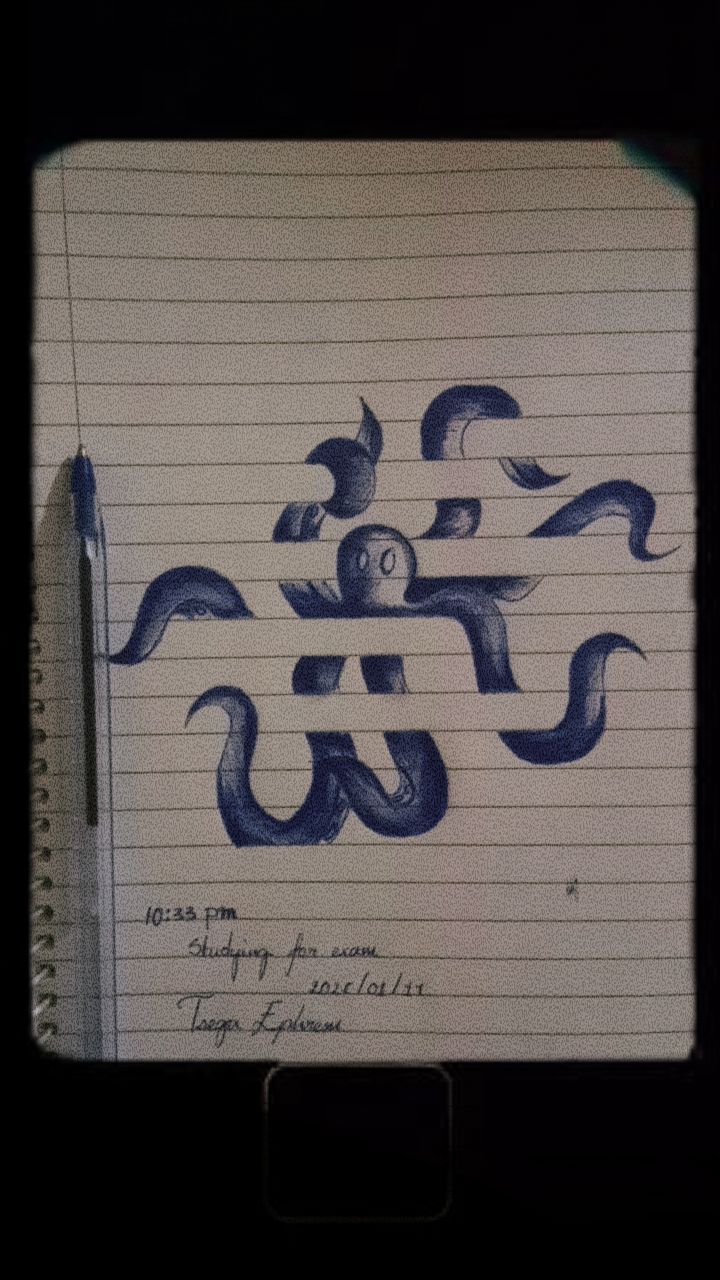 10:33 pm
Studying for exam
Tsega Ephrem